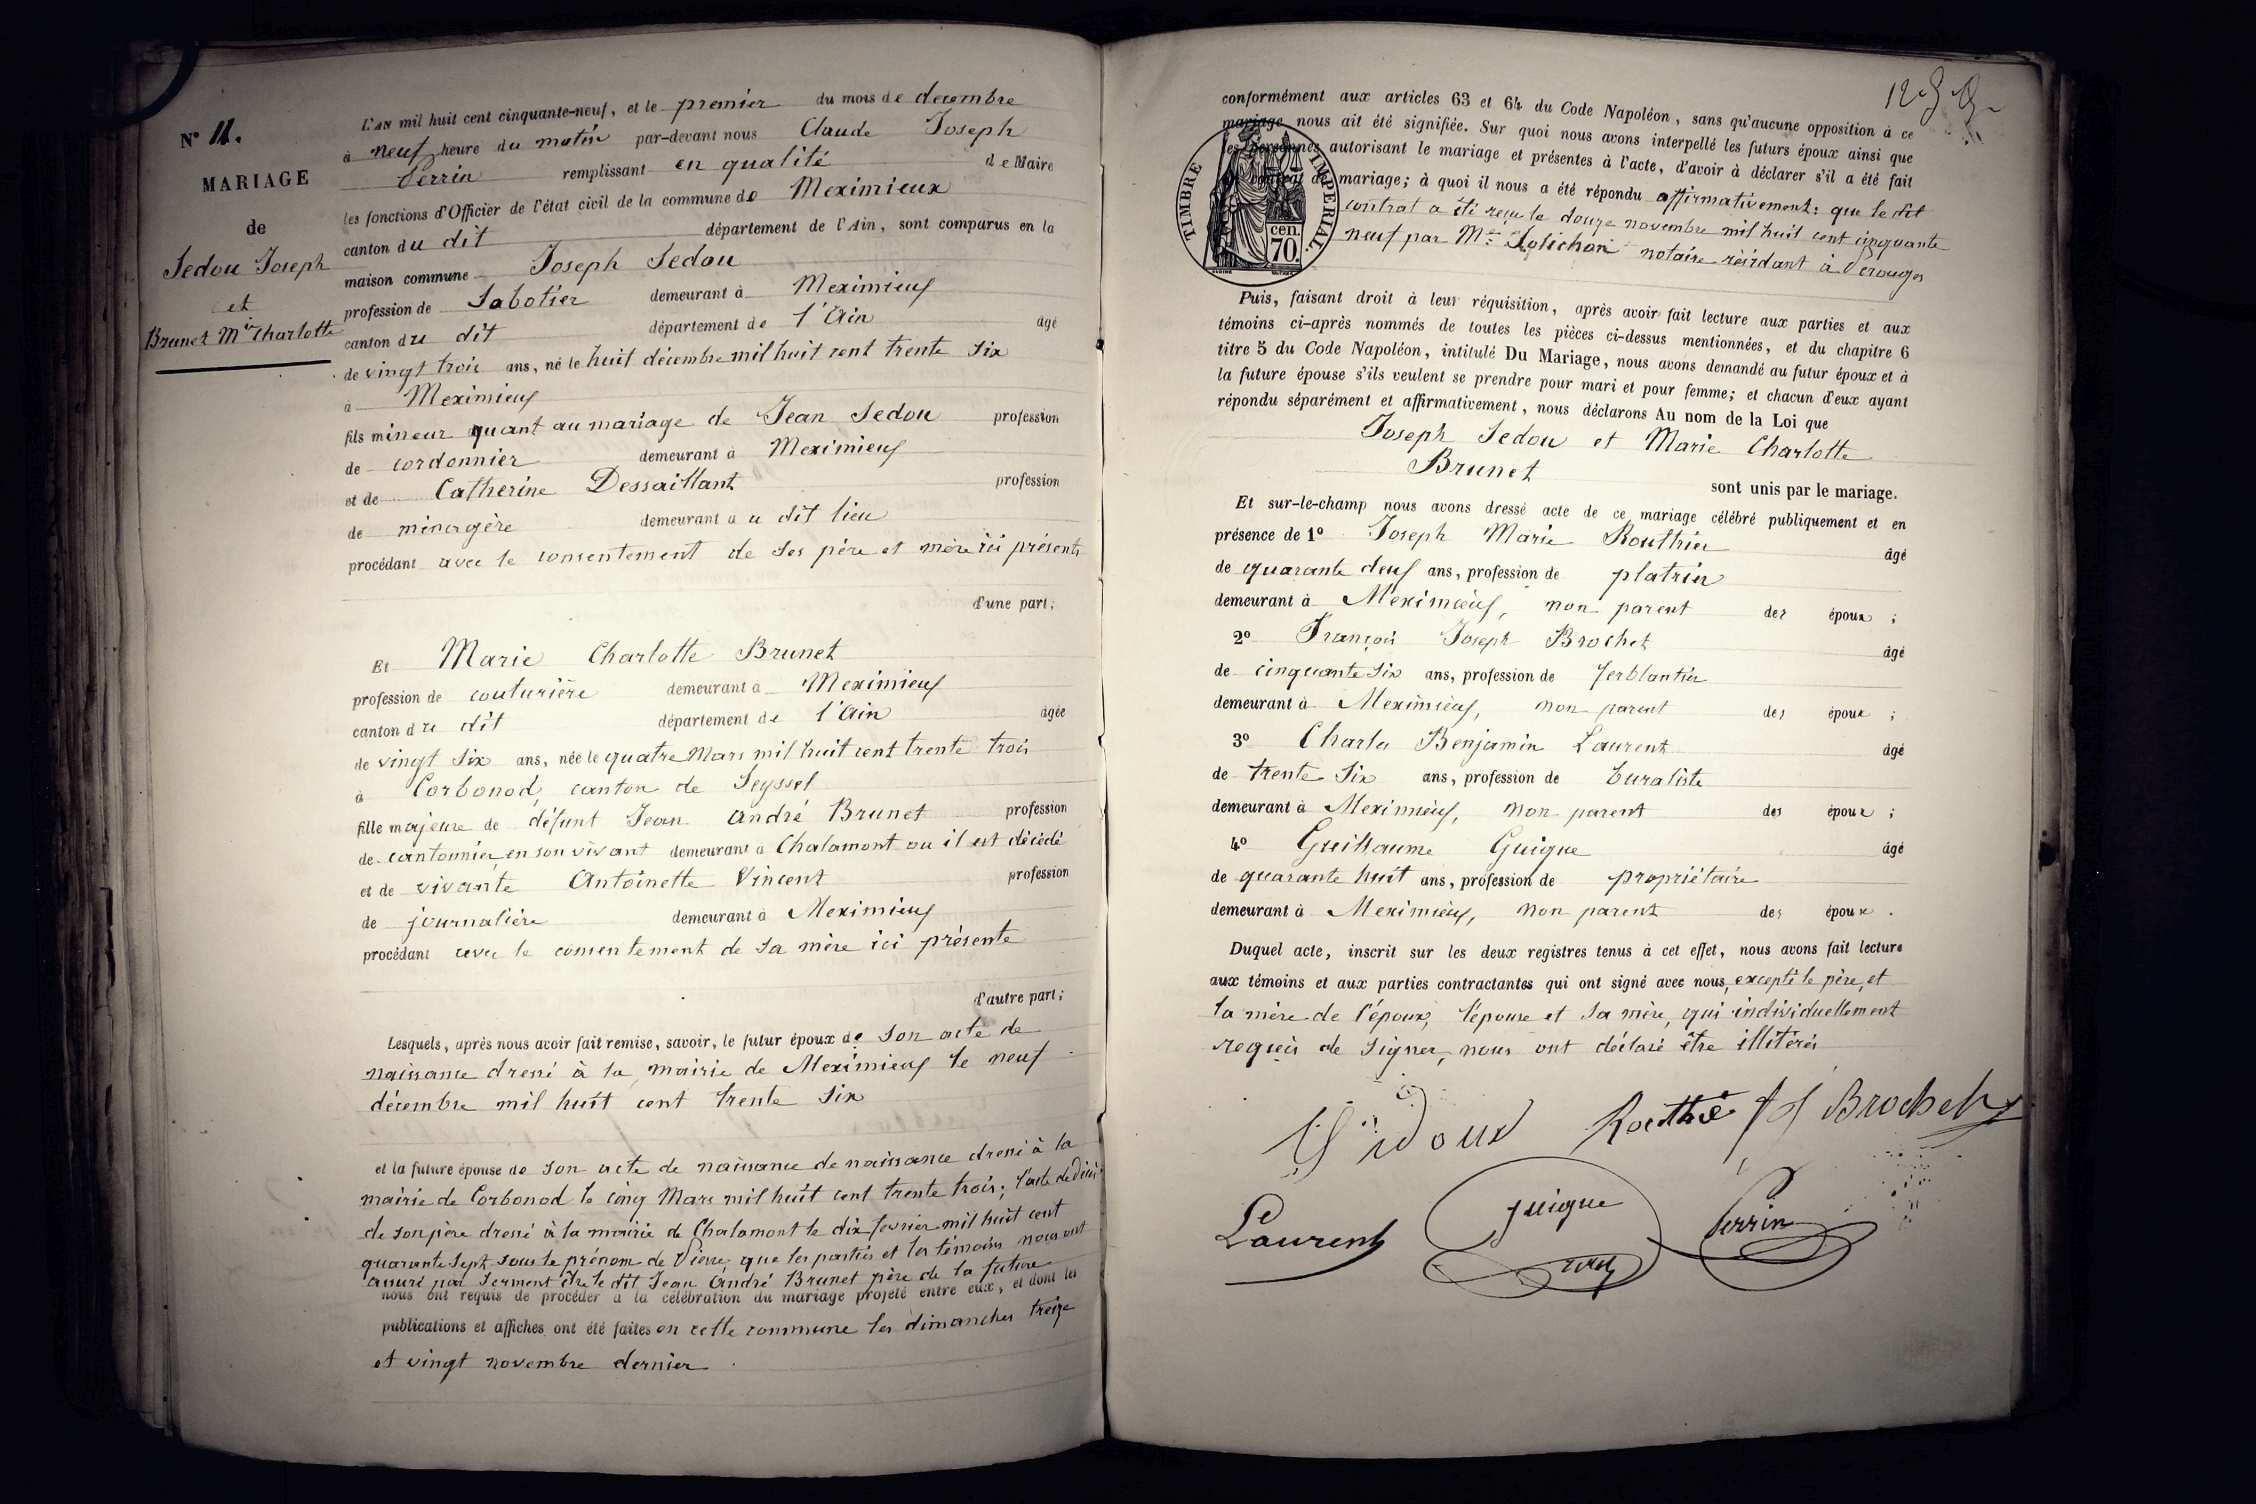 N° 11.
MARIAGE
de
Sedou Joseph
et
Brunet Mie Charlotte
L'AN mil huit cent cinquante-neuf, et le premier du mois de decembre
à neuf heure du matin par-devant nous Claude Joseph
Perrin remplissant en qualité de Maire
les fonctions d'Officier de l'état civil de la commune de Meximieux
canton du dit département de l'Ain, sont comparus en la
maison commune Joseph Sedou
profession de Sabotier demeurant à Meximieux
canton du dit département de l'Ain âgé
de vingt trois ans, né le huit décembre mil huit cent trente six
à Meximieux
fils mineur quant au mariage de Jean Sedou profession
de cordonnier demeurant à Meximieux
et de Catherine Dessaillant profession
de ménagère demeurant au dit lieu
procédant avec le consentement de ses père et mère ici présents
d'une part;
Et Marie Charlotte Brunet
profession de couturière demeurant à Meximieux
canton du dit département de l'Ain âgée
de vingt six ans, née le quatre Mars mil huit cent trente trois
à Corbonod, canton de Seyssel
fille majeure de défunt Jean André Brunet profession
de cantonnier, en son vivant demeurant à Chalamont ou il est décédé
et de vivante Antoinette Vincent profession
de journalière demeurant à Meximieux
procédant avec le consentement de sa mère ici présente
d'autre part;
Lesquels, après nous avoir fait remise, savoir, le futur époux de son acte de
naissance dressé à la mairie de Meximieux le neuf
décembre mil huit cent trente six
et la future épouse de son acte de naissance de naissance dressé à la
mairie de Corbonod le cinq Mars mil huit cent trente trois; l'acte de décès
de son père dressé à la mairie de Chalamont le dix fevrier mil huit cent
quarante sept sous le prénom de Pierre, que les parties et les témoins nous ont
assuré par serment être le dit Jean André Brunet père de la future
nous ont requis de procéder à la célébration du mariage projeté entre eux, et dont les
publications et affiches ont été faites en cette commune les dimanches treize
et vingt novembre dernier
conformément aux articles 63 et 64 du Code Napoléon, sans qu'aucune opposition à ce
mariage nous ait été signifiée. Sur quoi nous avons interpellé les futurs époux ainsi que
les personnes autorisant le mariage et présentes à l'acte, d'avoir à déclarer s'il a été fait
contrat de mariage; à quoi il nous a été répondu affirmativement: que le dit
contrat a été reçu le douze novembre mil huit cent cinquante
neuf par Me notaire résidant à Perouges
TIMBRE IMPERIAL.
cen.
70.
Puis, faisant droit à leur réquisition, après avoir fait lecture aux parties et aux
témoins ci-après nommés de toutes les pièces ci-dessus mentionnées, et du chapitre 6
titre 5 du Code Napoléon, intitulé Du Mariage, nous avons demandé au futur époux et à
la future épouse s'ils veulent se prendre pour mari et pour femme; et chacun d'eux ayant
répondu séparément et affirmativement, nous déclarons Au nom de la Loi que
Joseph Sedou et Marie Charlotte
Brunet
sont unis par le mariage.
Et sur-le-champ nous avons dressé acte de ce mariage célébré publiquement et en
présence de 1° Joseph Marie Routhier âgé
de quarante deux ans, profession de platrier
demeurant à Meximieux, non parent des époux ;
2° François Joseph Brochet âgé
de cinquante six ans, profession de ferblantier
demeurant à Meximieux, non parent des époux ;
3° Charles Benjamin Laurent âgé
de trente six ans, profession de buraliste
demeurant à Meximieux, non parent des époux ;
4° Guillaume Guigue âgé
de quarante huit ans, profession de propriétaire
demeurant à Meximieux, non parent des époux .
Duquel acte, inscrit sur les deux registres tenus à cet effet, nous avons fait lecture
aux témoins et aux parties contractantes qui ont signé avec nous, excepté le père, et
la mère de l'époux, l'épouse et sa mère, qui individuellement
requis de signer, nous ont déclaré être illitérés
Brochet
Laurent
guigue
Perrin